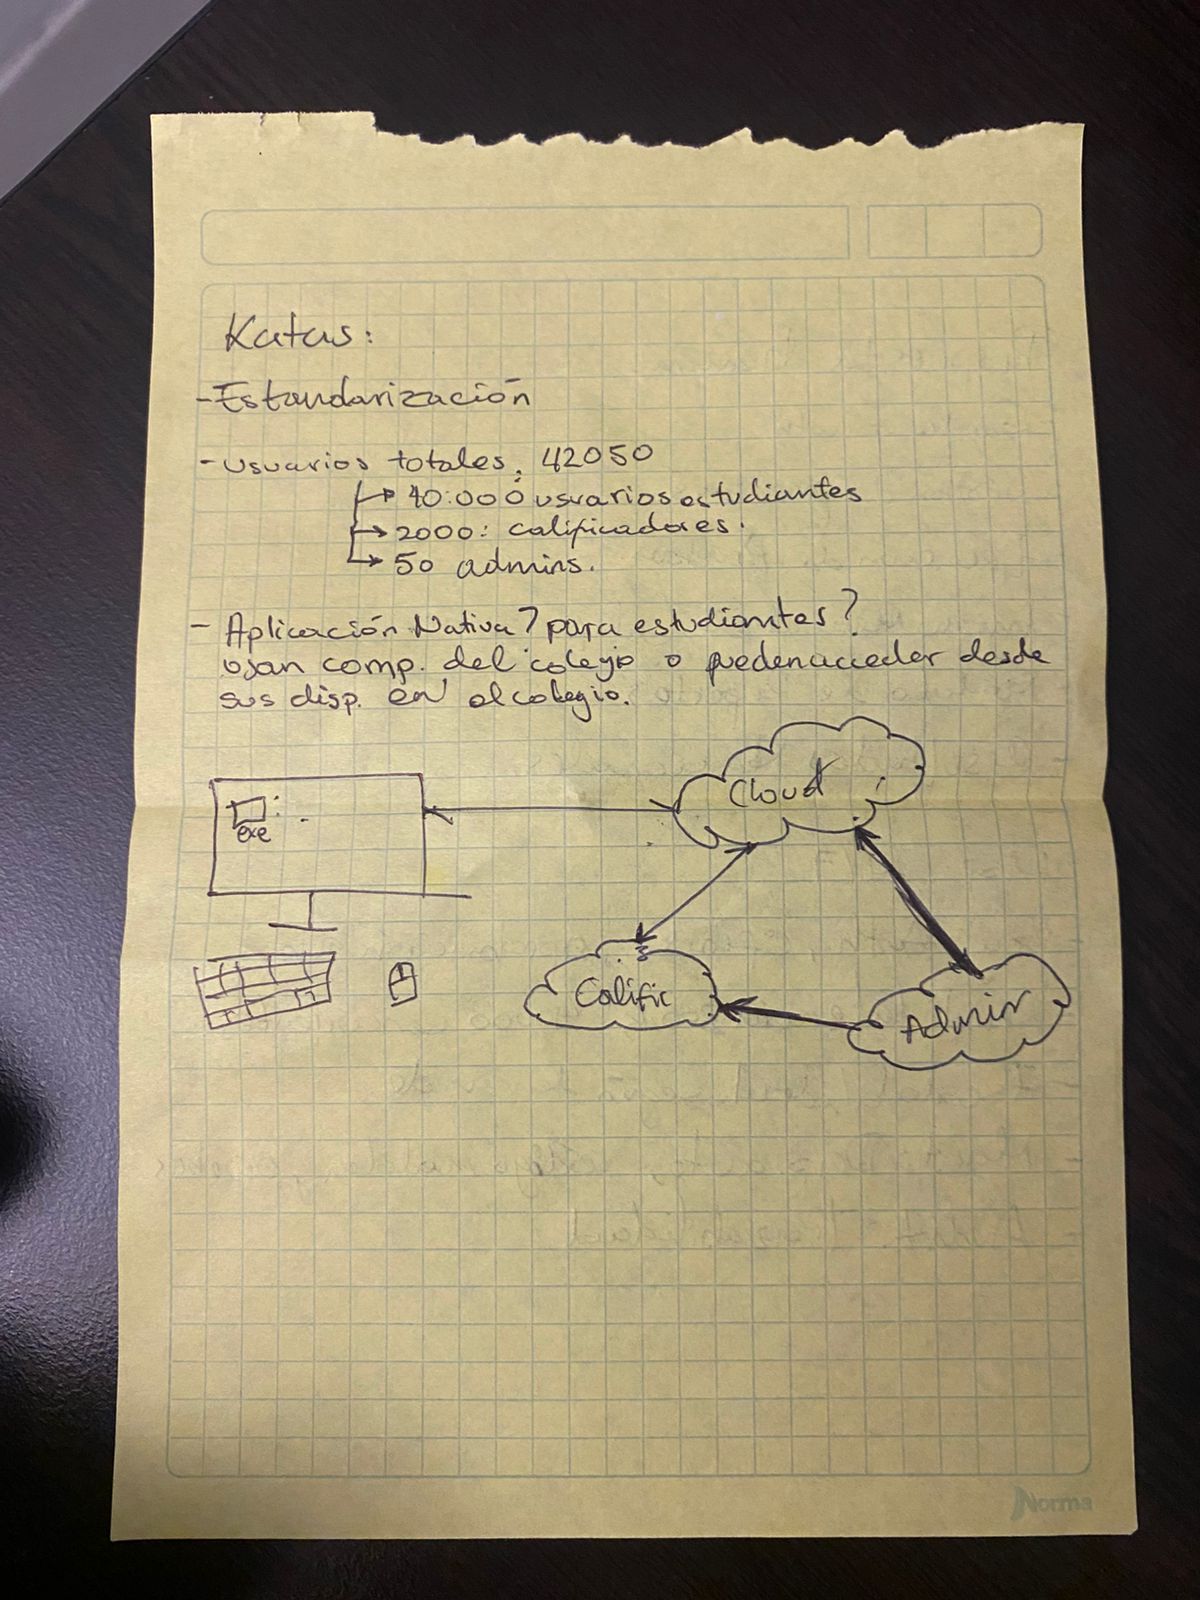 Katas:
- Estandarización
- usuarios totales: 42050
40.000 usuarios estudiantes
2000: calificadores.
50 admins.
- Aplicación Nativa? para estudiantes?
usan comp. del colegio o pueden acceder desde
sus disp. en el colegio.
Cloud
exe
Calific
Admin
Norma